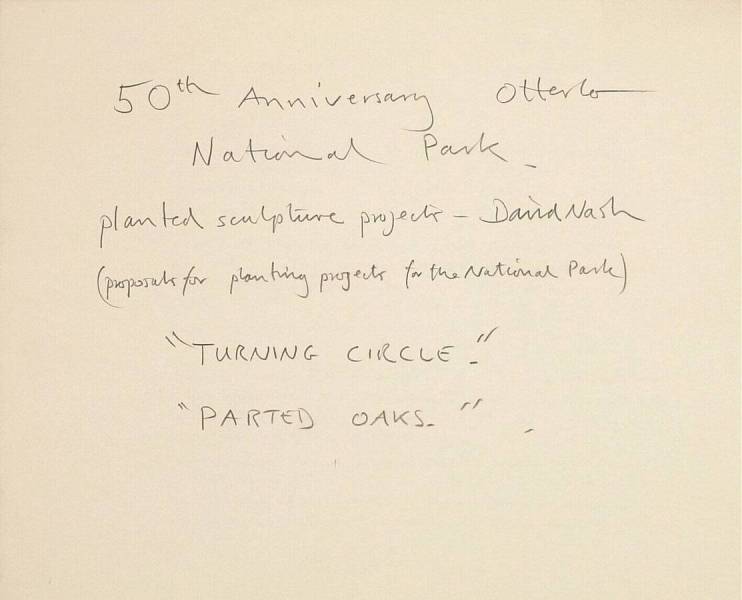 50th Anniversary Otterlo
National Park -
planted sculpture projects - David Nash
(proposals for planting projects for the National Park)
"TURNING CIRCLE."
"PARTED OAKS."